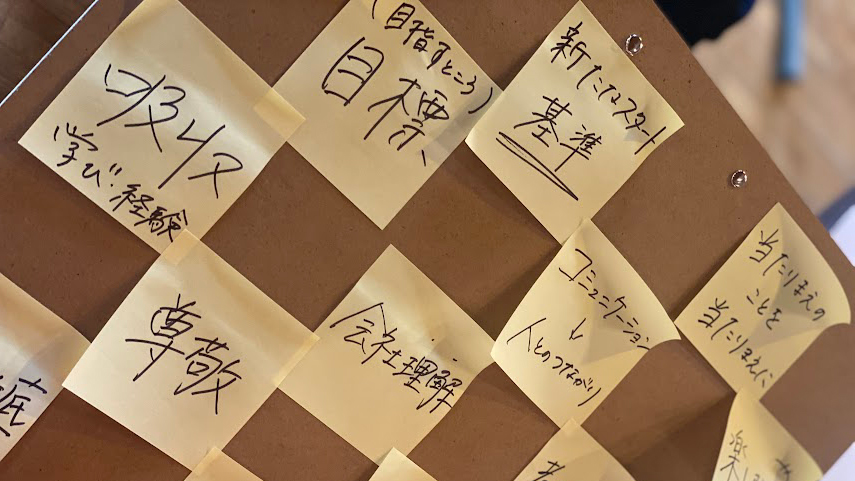 吸収
学び・経験
(目指すところ)
目標
新たなスタート
基準
尊敬
会社理解
コミュニケーション
↓
人とのつながり
当たりまえの
ことを
当たりまえに
底
楽し